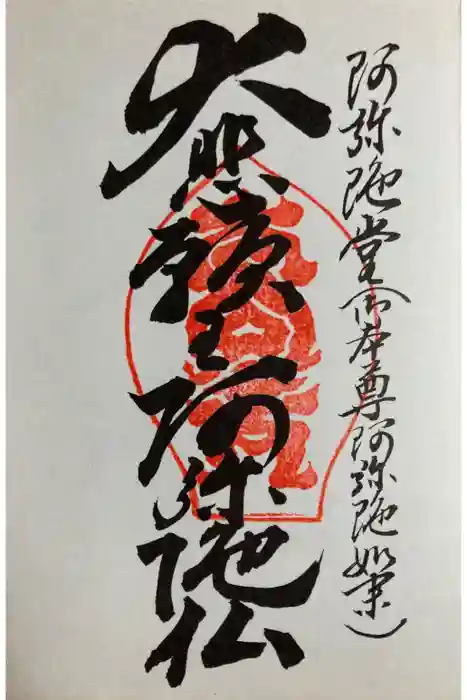 阿弥陀堂(御本尊阿弥陀如来)
大悲願王阿弥陀仏